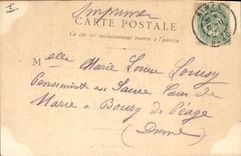 I
Imprimé
CARTE POSTALE
Ce côté est exclusivement réservé à l'adresse
Melle Marie Louise
Pensionnat du Sacré Cœur de
Marie à Bourg de Péage
(Drôme)